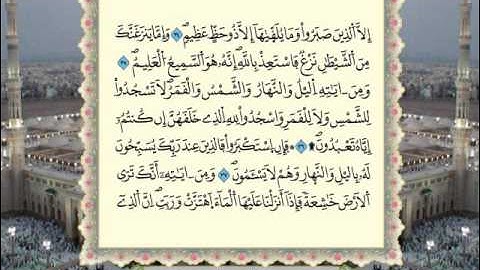 إِلَّا اَلذِينَ صَبَرُواْ وَمَا يُلَقَّيٰهَآ إِلَّا ذُو حَظٍّ عَظِيمٖ وَإِمَّا يَنزَغَنَّكَ
مِنَ اَلشَّيْطَٰنِ نَزْغٞ فَاسْتَعِذْ بِاللَّهِ إِنَّهُۥ هُوَ اَلسَّمِيعُ اُلْعَلِيمُ
وَمِنَ اٰيَٰتِهِ اِليْلُ وَالنَّهَارُ وَالشَّمْسُ وَالْقَمَرُ لَا تَسْجُدُواْ
لِلشَّمْسِ وَلَا لِلْقَمَرِ وَاسْجُدُواْ لِلهِ اِلذِے خَلَقَهُنَّ إِن كُنتُمُۥٓ
إِيَّاهُ تَعْبُدُونَ فَإِنِ اِسْتَكْبَرُواْ فَالذِينَ عِندَ رَبِّكَ يُسَبِّحُونَ
لَهُۥ بِاليْلِ وَالنَّهَارِ وَهُمْ لَا يَسْـَٔمُونَ وَمِنَ اٰيَٰتِهِۦٓ أَنَّكَ تَرَى
اَلْأَرْضَ خَٰشِعَةٗ فَإِذَآ أَنزَلْنَا عَلَيْهَا اَلْمَآءَ اَهْتَزَّتْ وَرَبَتِ انَّ اَلذِےٓ